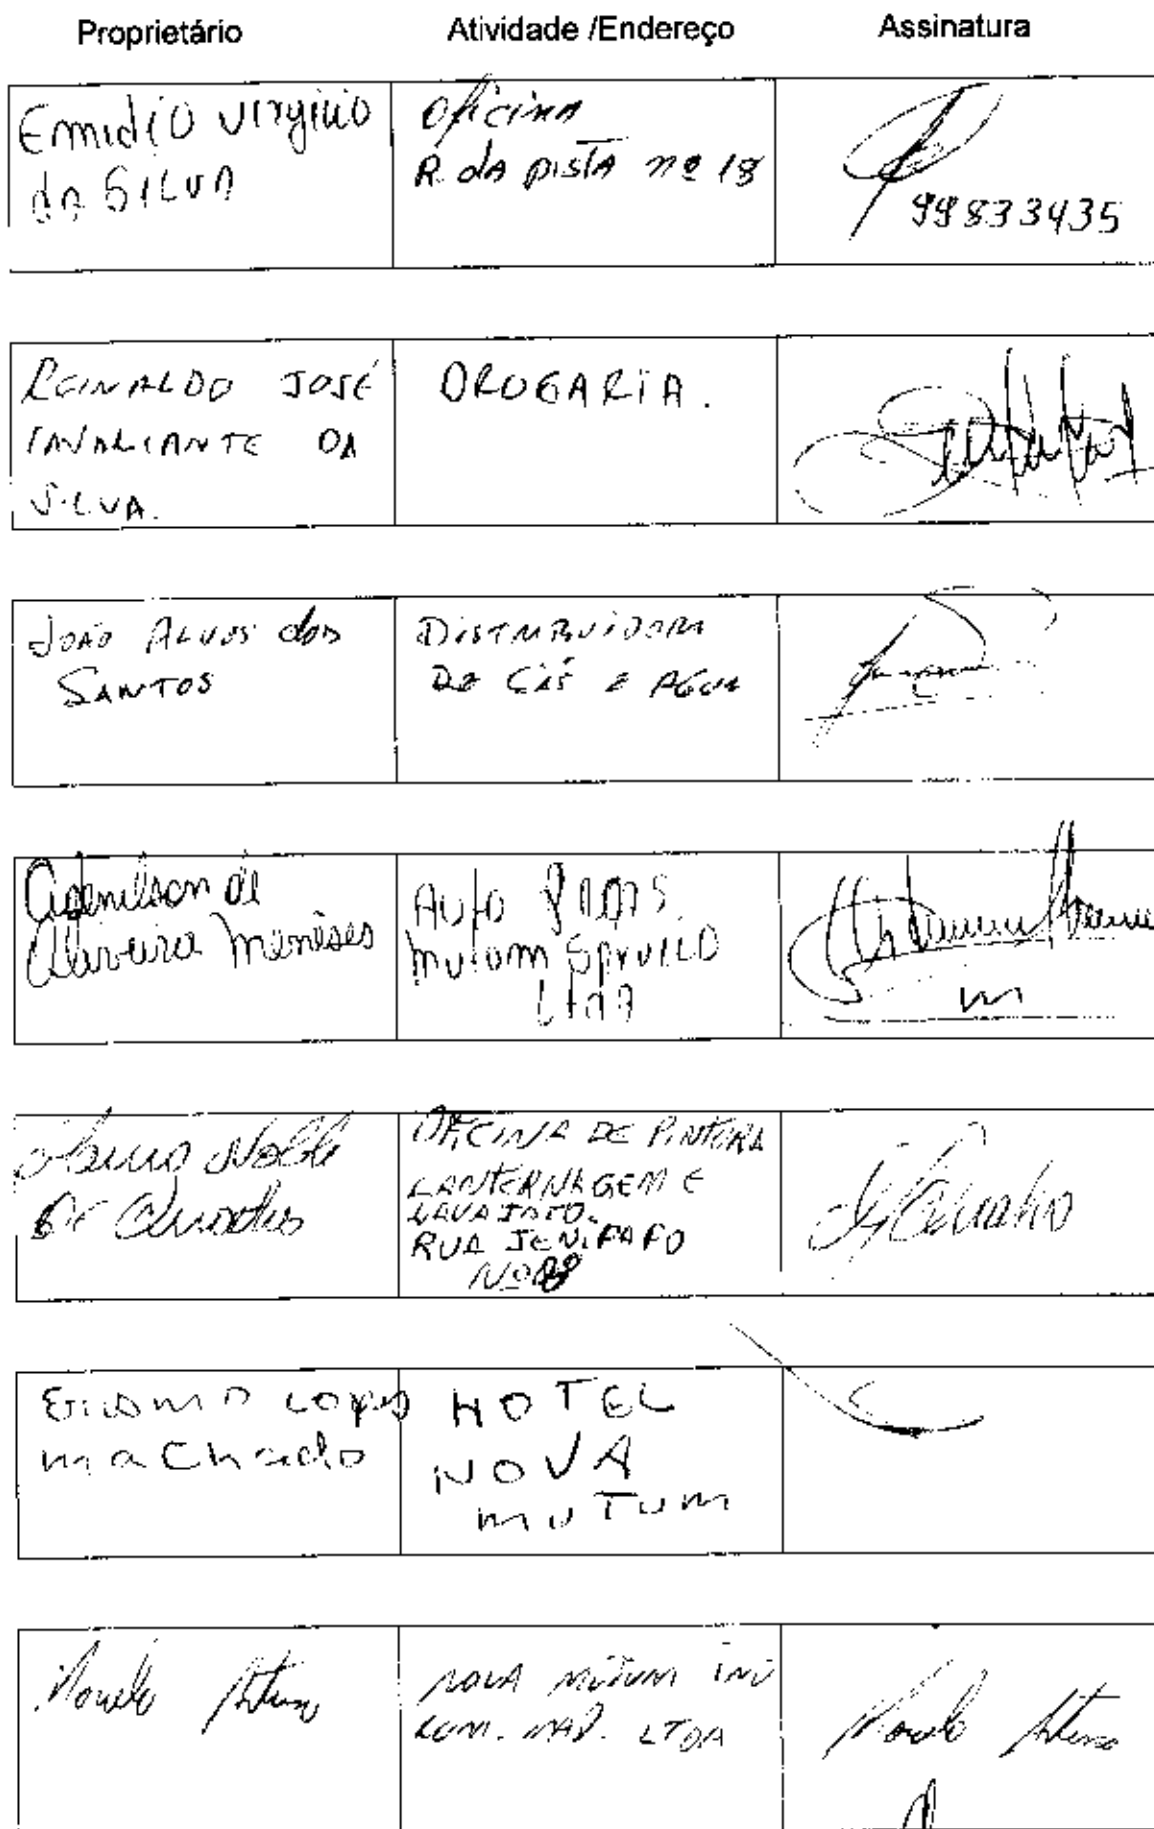 Proprietário Atividade /Endereço Assinatura
Emidio Virgilio
da SILVA
Oficina
R. da pista nº 18
99833435
REINALDO JOSÉ
CAVALCANTE DA
SILVA.
DROGARIA.
JOÃO ALVES dos
SANTOS
DISTRIBUIDORA
DE GÁS E AGUA
Adenilson de
Oliveira meneses
Auto
mutum Serviço
Ltda
DE Quadros
OFICINA DE PINTURA
LANTERNAGEM E
LAVAJATO.
RUA JENIPAPO
Nº
Lopes
machado
HOTEL
NOVA
mutum
NOVA MUTUM IND
COM. MAD. LTDA